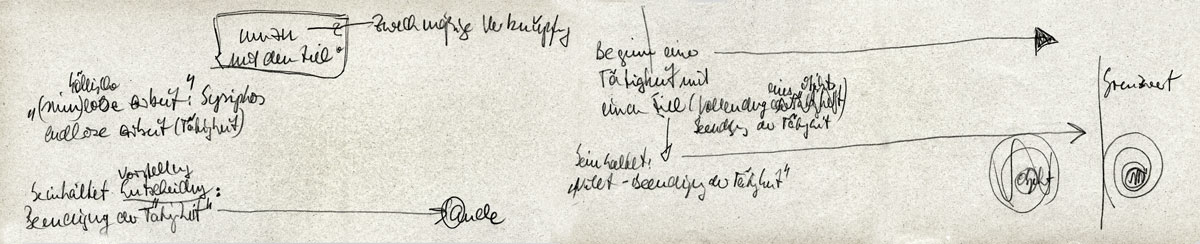 wozu ?
mit dem Ziel
zweckmäßige Verknüpfg
höllische
"(sinn)lose Arbeit": Sysiphos
endlose Arbeit (Tätigkeit)
Vorstellung
beinhaltet Entscheidung:
Beendigung der Tätigkeit"
Ende
Beginn einer
Tätigkeit mit
einem Ziel (Vollendung eines Objekts
Beendigg der Tätigkeit
beinhaltet:
"Nicht-Beendigung der Tätigkeit"
Objekt
Grenzwert